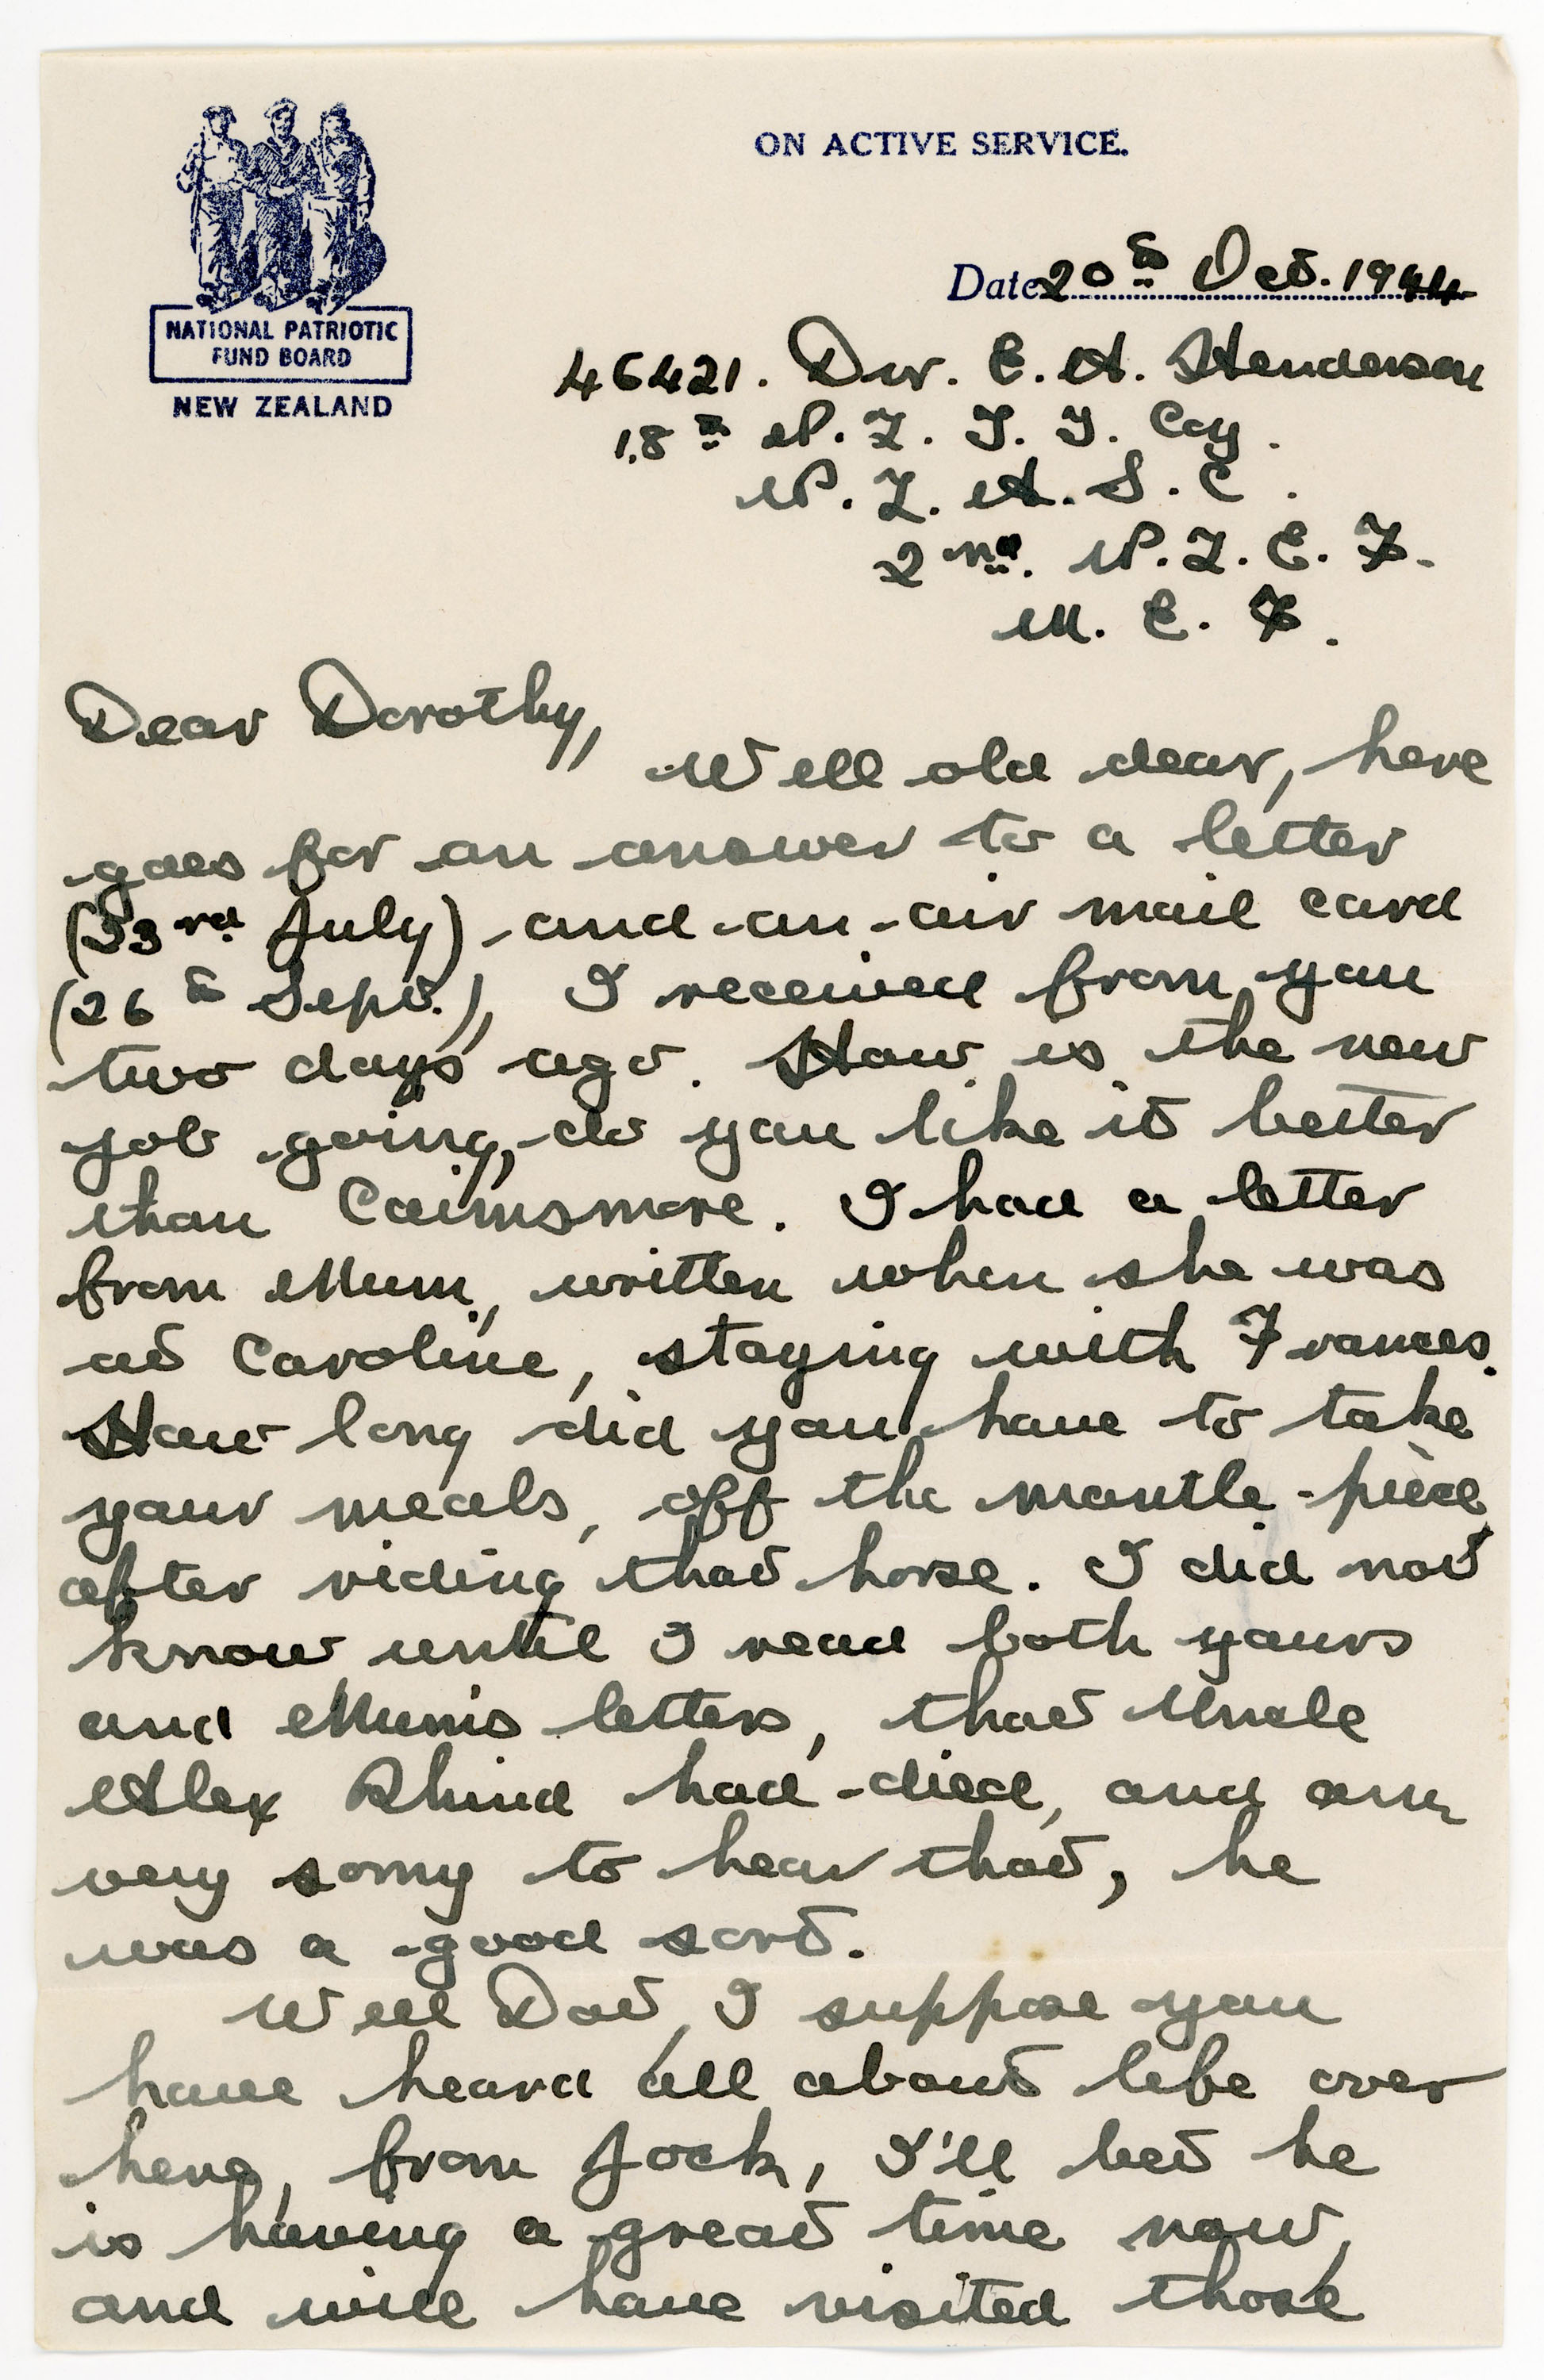 ON ACTIVE SERVICE.
NATIONAL PATRIOTIC
FUND BOARD
NEW ZEALAND
Date 20th Oct. 1944
46421. Dvr. E. A. Henderson
18th N. Z. T. T. Coy.
N. Z. A. S. C.
2nd. N. Z. E. F.
M. E. F.
Dear Dorothy,
Well old dear, here
goes for an answer to a letter
(23rd July) and an air mail card
(26th Sept.), I received from you
two days ago. How is the new
job going, do you like it better
than Cairnsmore. I had a letter
from Mum, written when she was
at Caroline, staying with Frances.
How long did you have to take
your meals, off the mantle-piece
after riding that horse. I did not
know until I read both yours
and Mum's letters, that Uncle
Alex Rhind had died, and am
very sorry to hear that, he
was a good sort.
Well Dot, I suppose you
have heard all about life over
here, from Jock, I'll bet he
is having a great time now,
and will have visited those